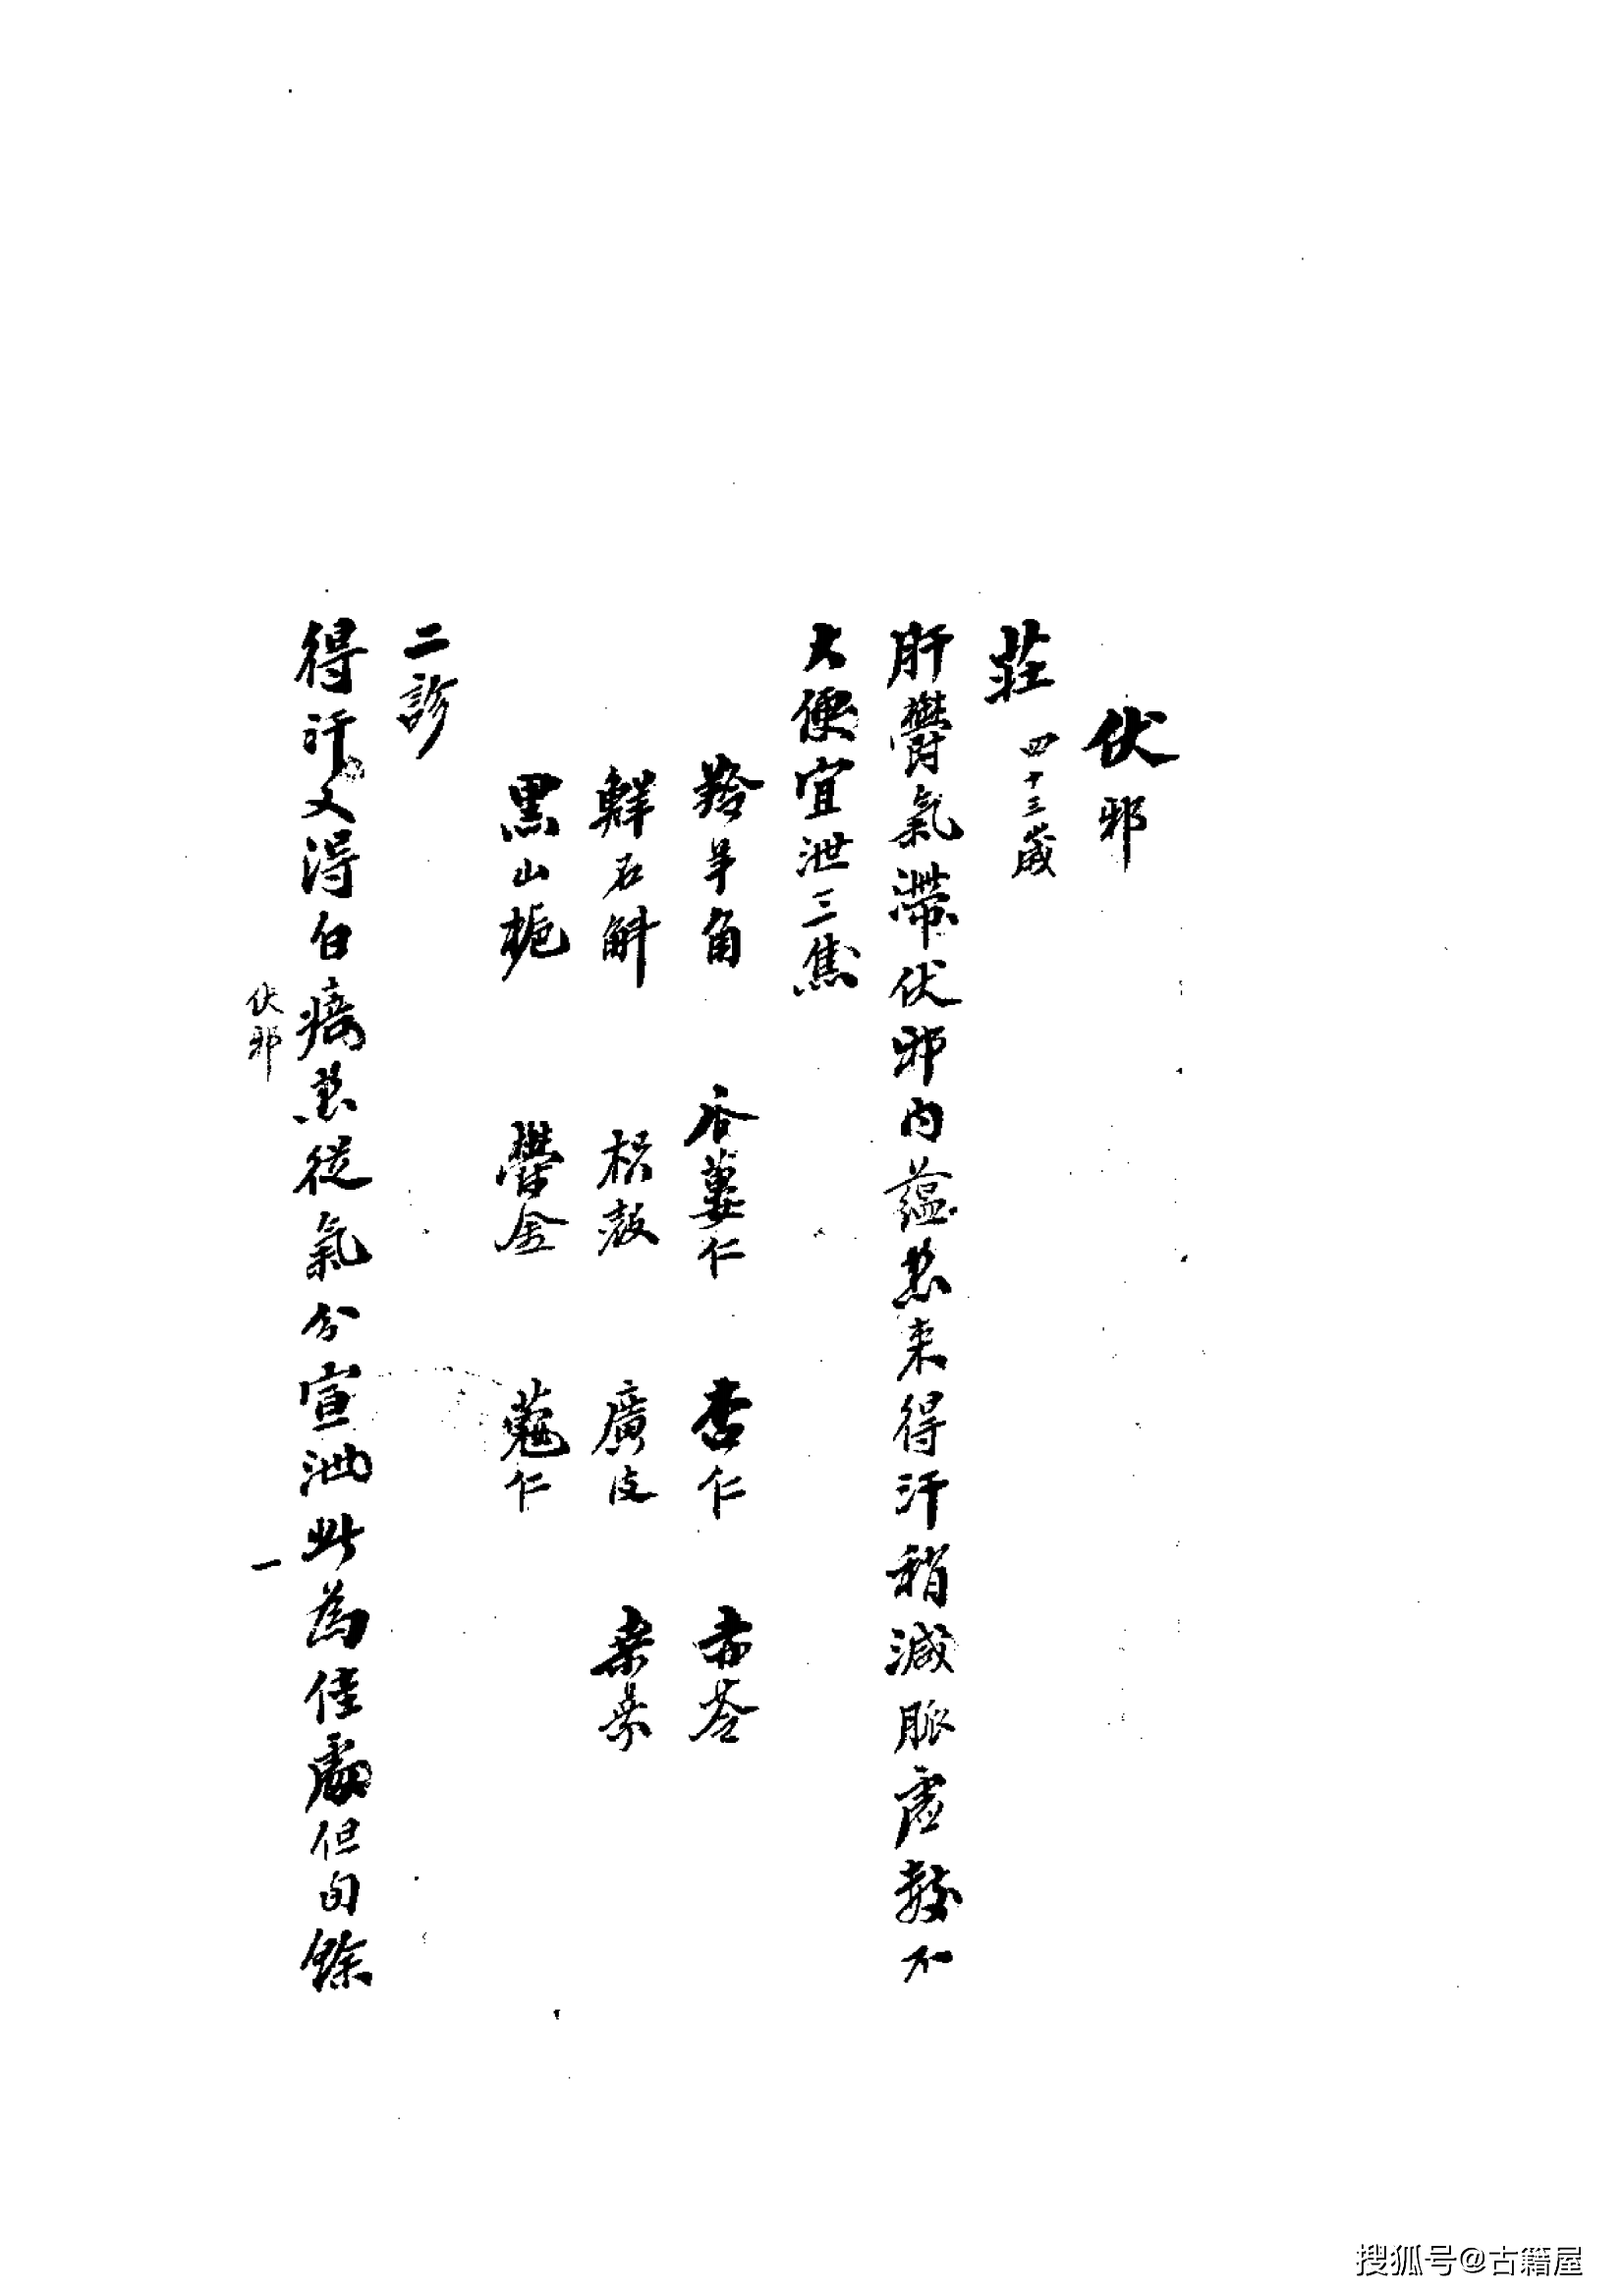 伏邪
莊 四十三歲
肝鬱氣滯伏邪内蘊熱來得汗稍減脈虛數不
大便宜泄三焦
羚羊角 瓜蔞仁 杏仁 赤苓
鮮石斛 枳殼 廣皮 桑葉
黑山梔 鬱金 蔻仁
二診
得汗又得白㾦熱從氣分宣泄此為佳處但旬餘
伏邪 一
搜狐号@古籍屋